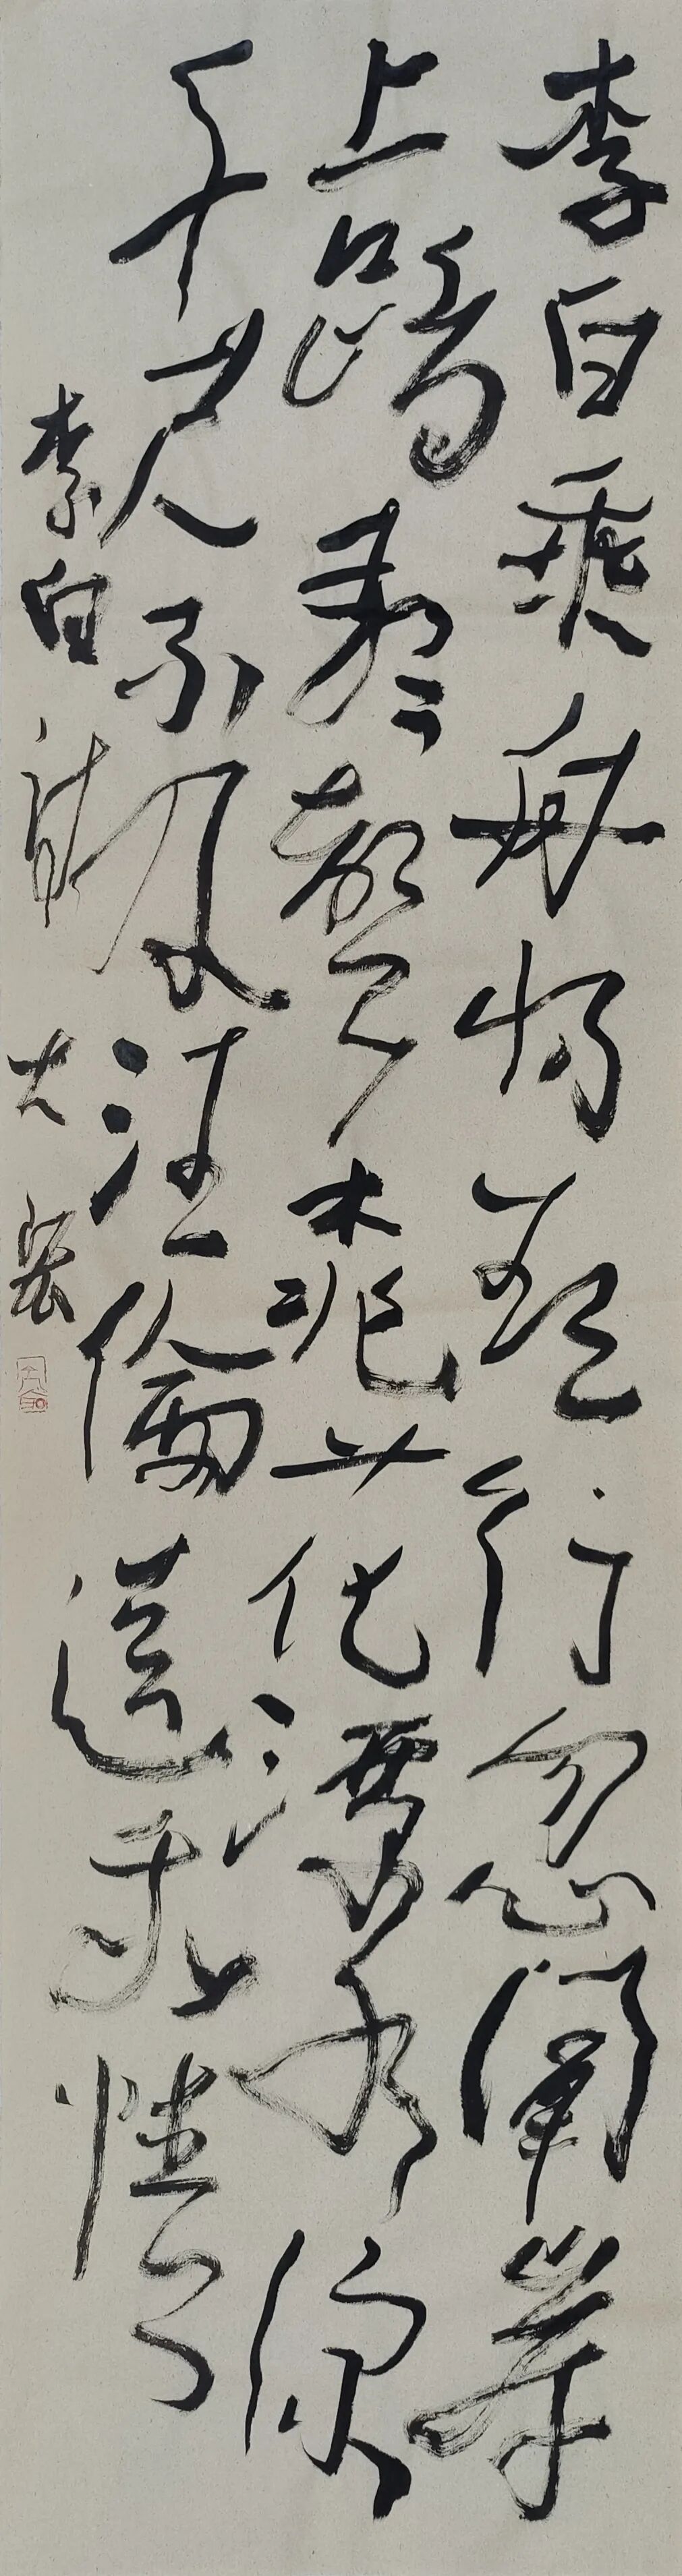 李白乘舟将欲行忽闻岸
上踏歌聲桃花潭水深
千尺不及汪倫送我情
李白詩